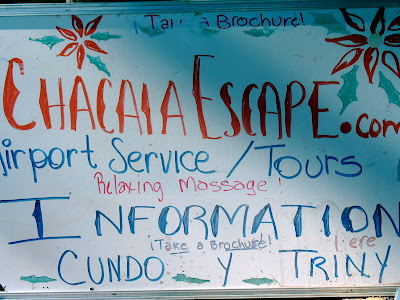 Take a Brochure!
CHACALAESCAPE.com
Airport Service/Tours
Relaxing Massage!
INFORMATION
¡Take a Brochure! Here
CUNDO Y TRINY